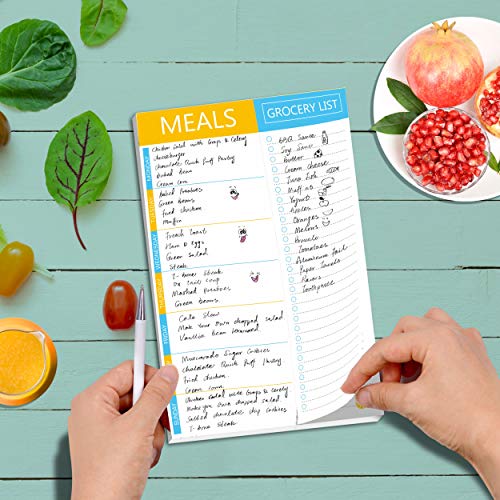 MEALS
GROCERY LIST
MONDAY
Chicken Salad with Grapes & Celery
cheeseburger
chocolate Quick Puff Pastry
Baked Bean
Cream corn
Baked Potatoes
Green Beans
Fried Chicken
Muffin
WEDNESDAY
French toast
Ham & Eggs
Green Salad
Steak
T-bone Steak
Mashed Potatoes
Green beans
FRIDAY
Cole Slaw
Make Your Own chopped salad
Vanilla Bean
Sugar Cookies
chocolate Quick Puff Pastry
Fried chicken
Cream Corn
SUNDAY
Chicken Salad with Grapes & Celery
Make your own chopped salad
Salted chocolate chip Cookies
T-bone Steak
BBQ Sauce
Soy Sauce
butter
Cream cheese
Tuna fish
Muffins
Yogurt
Apples
Oranges
Melons
Broccoli
Tomatoes
Aluminum foil
Paper towels
Razors
Toothpaste